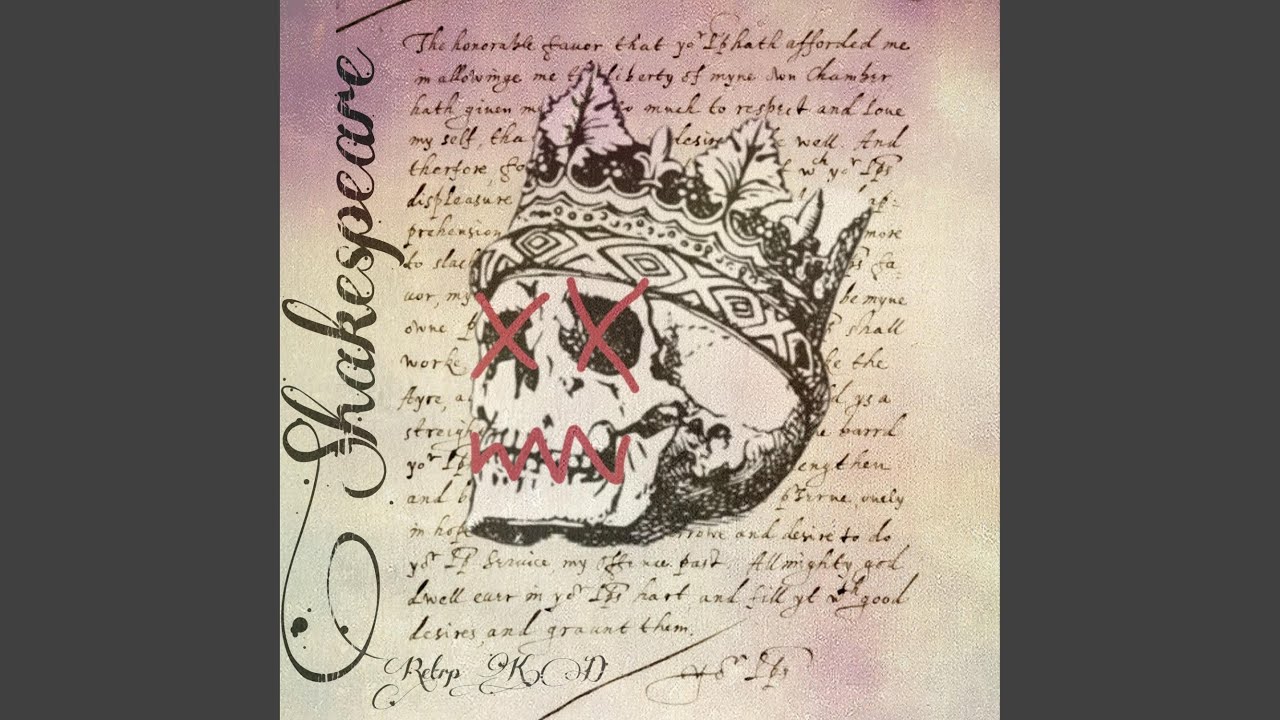 Shakespeare
The honorable favor that yor Lp hath afforded me
in allowinge me the liberty of myne own Chamber
hath given m so much to respect and Love
my self, tha desire well. And
therfore, fo wch yor Lps
displeasure ap:
prehension more
to slac fa:
uor, my be myne
owne shall
worke the
Ayre, a d ys a
streigh barrd
yor Lp engthen
and b serue, onely
in hope rrowe and desire to do
yor Lp Service, my offence past. Allmighty god
dwell euer in yor Lps hart, and fill yt wth good
desires, and graunt them.
Retrp K.D
yor Lps